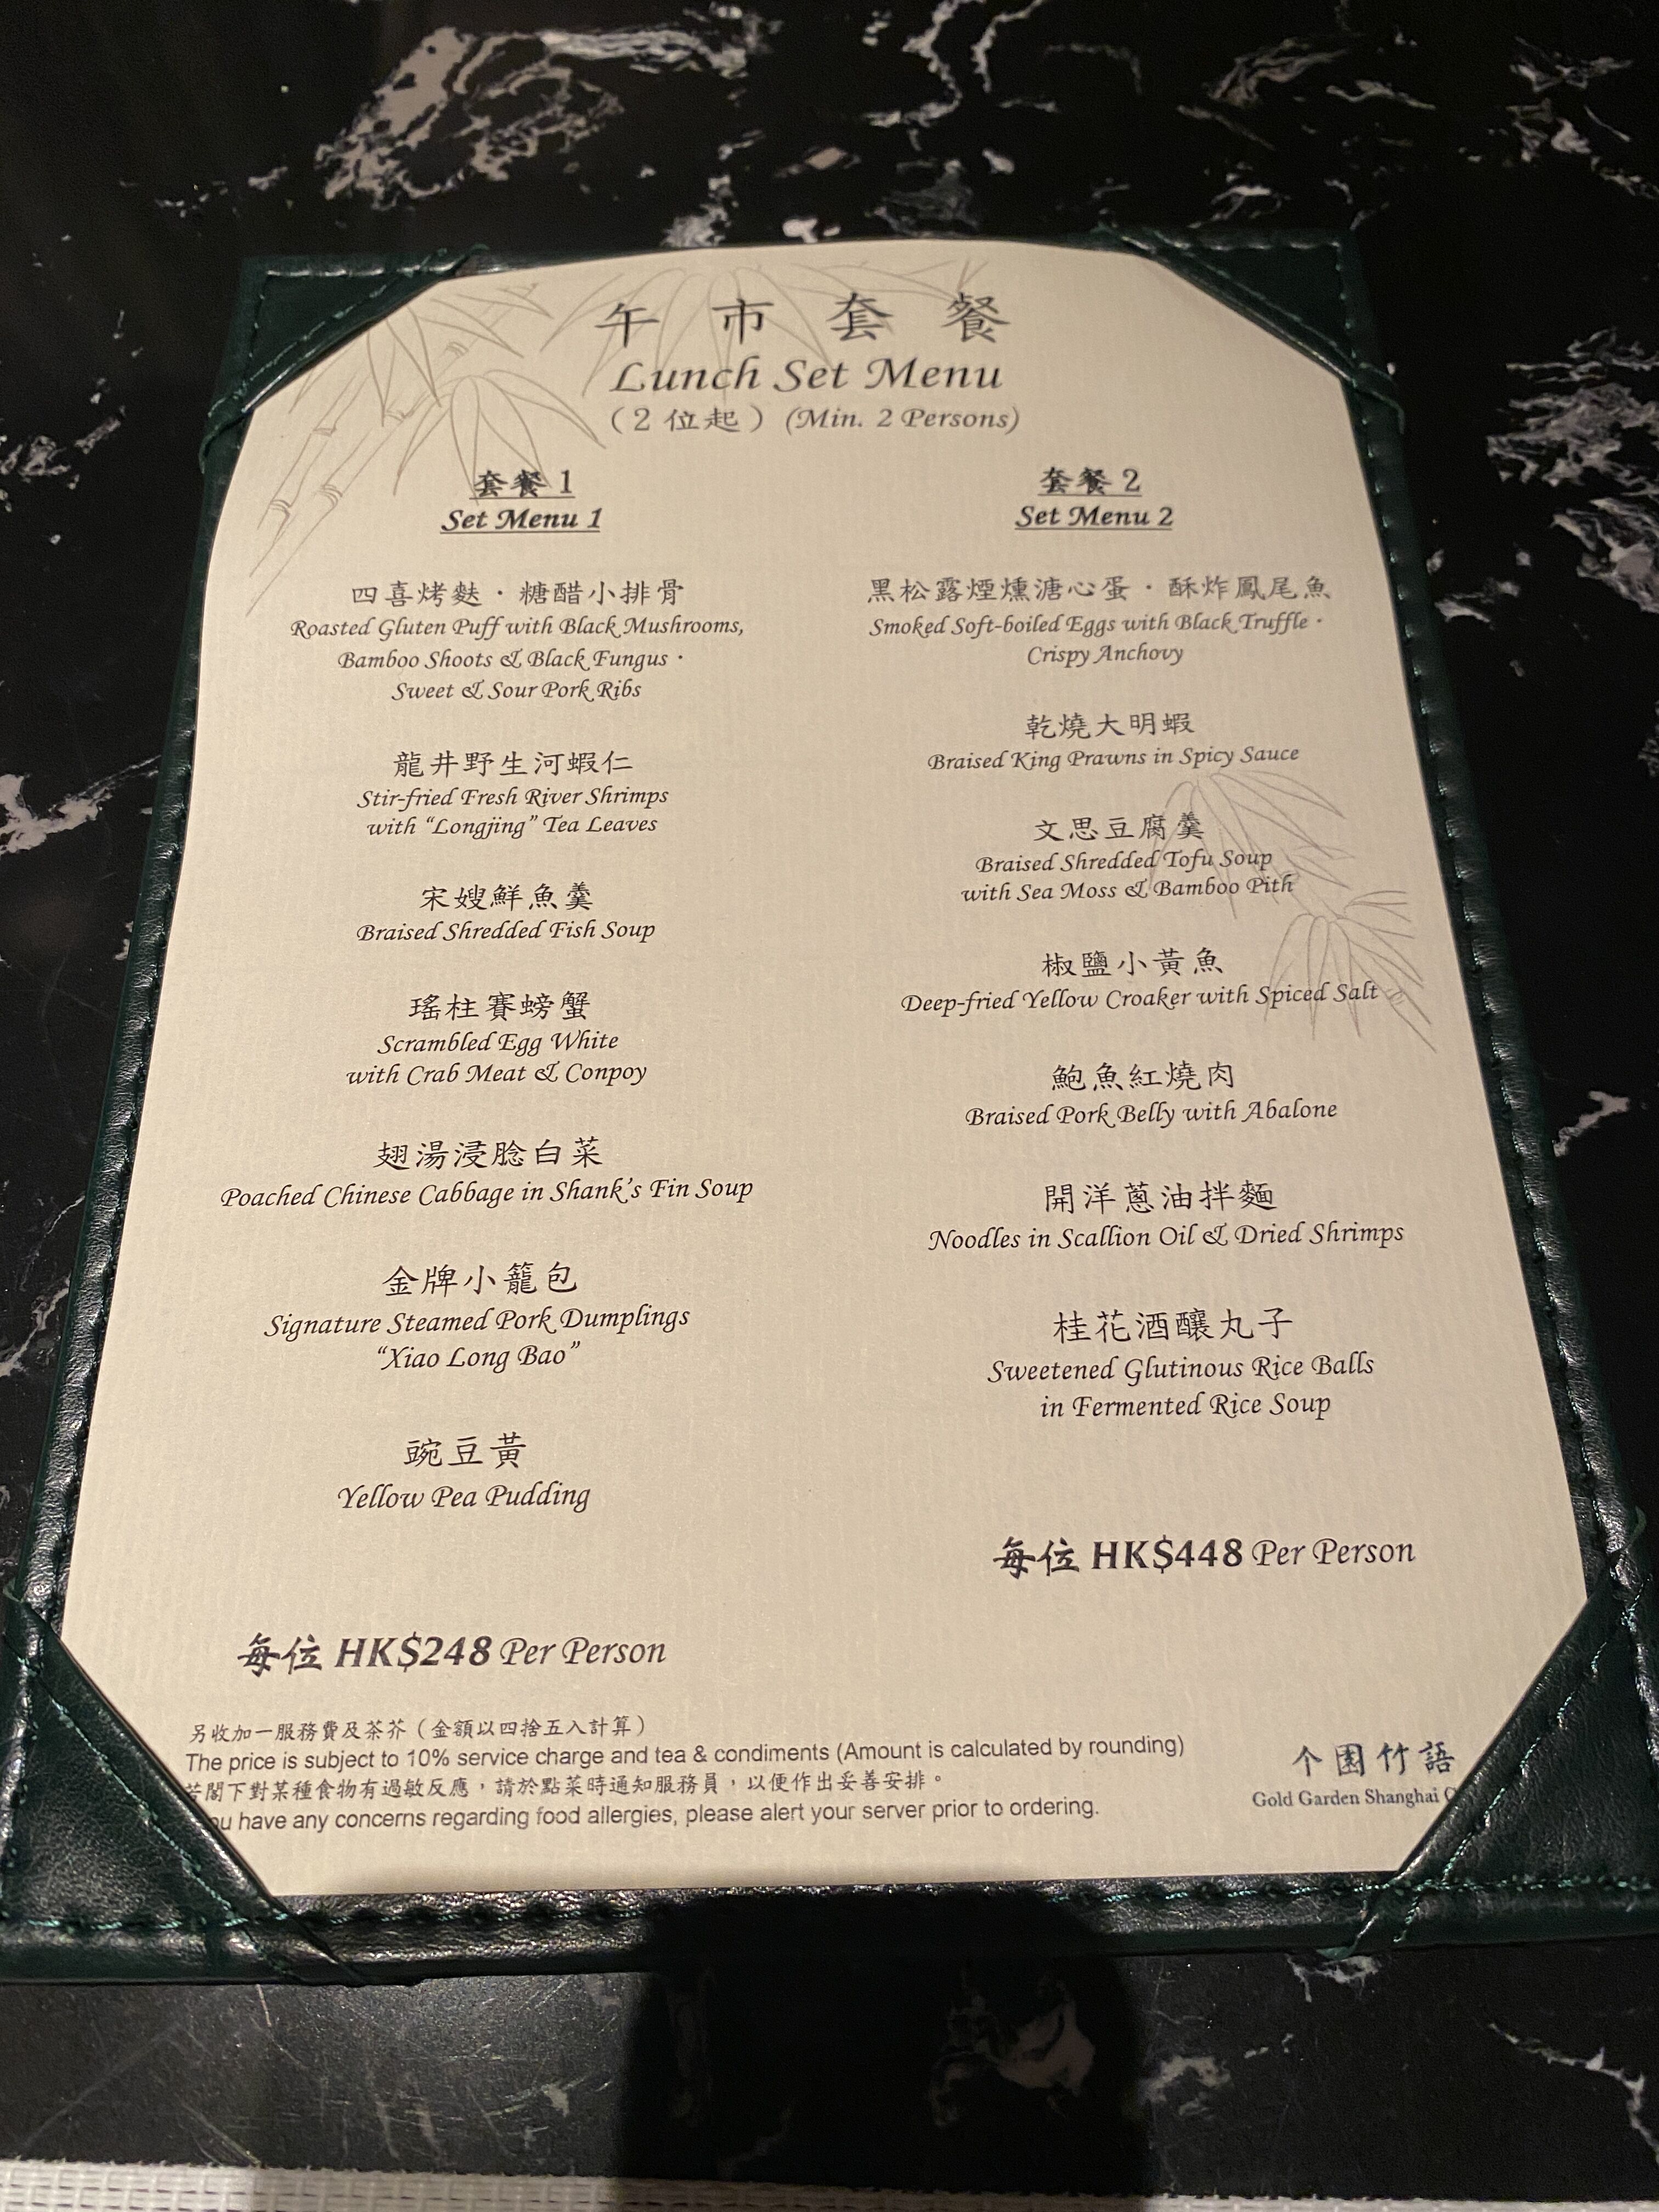 午市套餐
Lunch Set Menu
（2 位起）(Min. 2 Persons)
套餐 1
Set Menu 1
四喜烤麩．糖醋小排骨
Roasted Gluten Puff with Black Mushrooms,
Bamboo Shoots & Black Fungus ·
Sweet & Sour Pork Ribs
龍井野生河蝦仁
Stir-fried Fresh River Shrimps
with “Longjing” Tea Leaves
宋嫂鮮魚羹
Braised Shredded Fish Soup
瑤柱賽螃蟹
Scrambled Egg White
with Crab Meat & Conpoy
翅湯浸腍白菜
Poached Chinese Cabbage in Shank’s Fin Soup
金牌小籠包
Signature Steamed Pork Dumplings
“Xiao Long Bao”
豌豆黃
Yellow Pea Pudding
每位 HK$248 Per Person
套餐 2
Set Menu 2
黑松露煙燻溏心蛋．酥炸鳳尾魚
Smoked Soft-boiled Eggs with Black Truffle ·
Crispy Anchovy
乾燒大明蝦
Braised King Prawns in Spicy Sauce
文思豆腐羹
Braised Shredded Tofu Soup
with Sea Moss & Bamboo Pith
椒鹽小黃魚
Deep-fried Yellow Croaker with Spiced Salt
鮑魚紅燒肉
Braised Pork Belly with Abalone
開洋蔥油拌麵
Noodles in Scallion Oil & Dried Shrimps
桂花酒釀丸子
Sweetened Glutinous Rice Balls
in Fermented Rice Soup
每位 HK$448 Per Person
另收加一服務費及茶芥（金額以四捨五入計算）
The price is subject to 10% service charge and tea & condiments (Amount is calculated by rounding)
若閣下對某種食物有過敏反應，請於點菜時通知服務員，以便作出妥善安排。
have any concerns regarding food allergies, please alert your server prior to ordering.
个園竹語
Gold Garden Shanghai